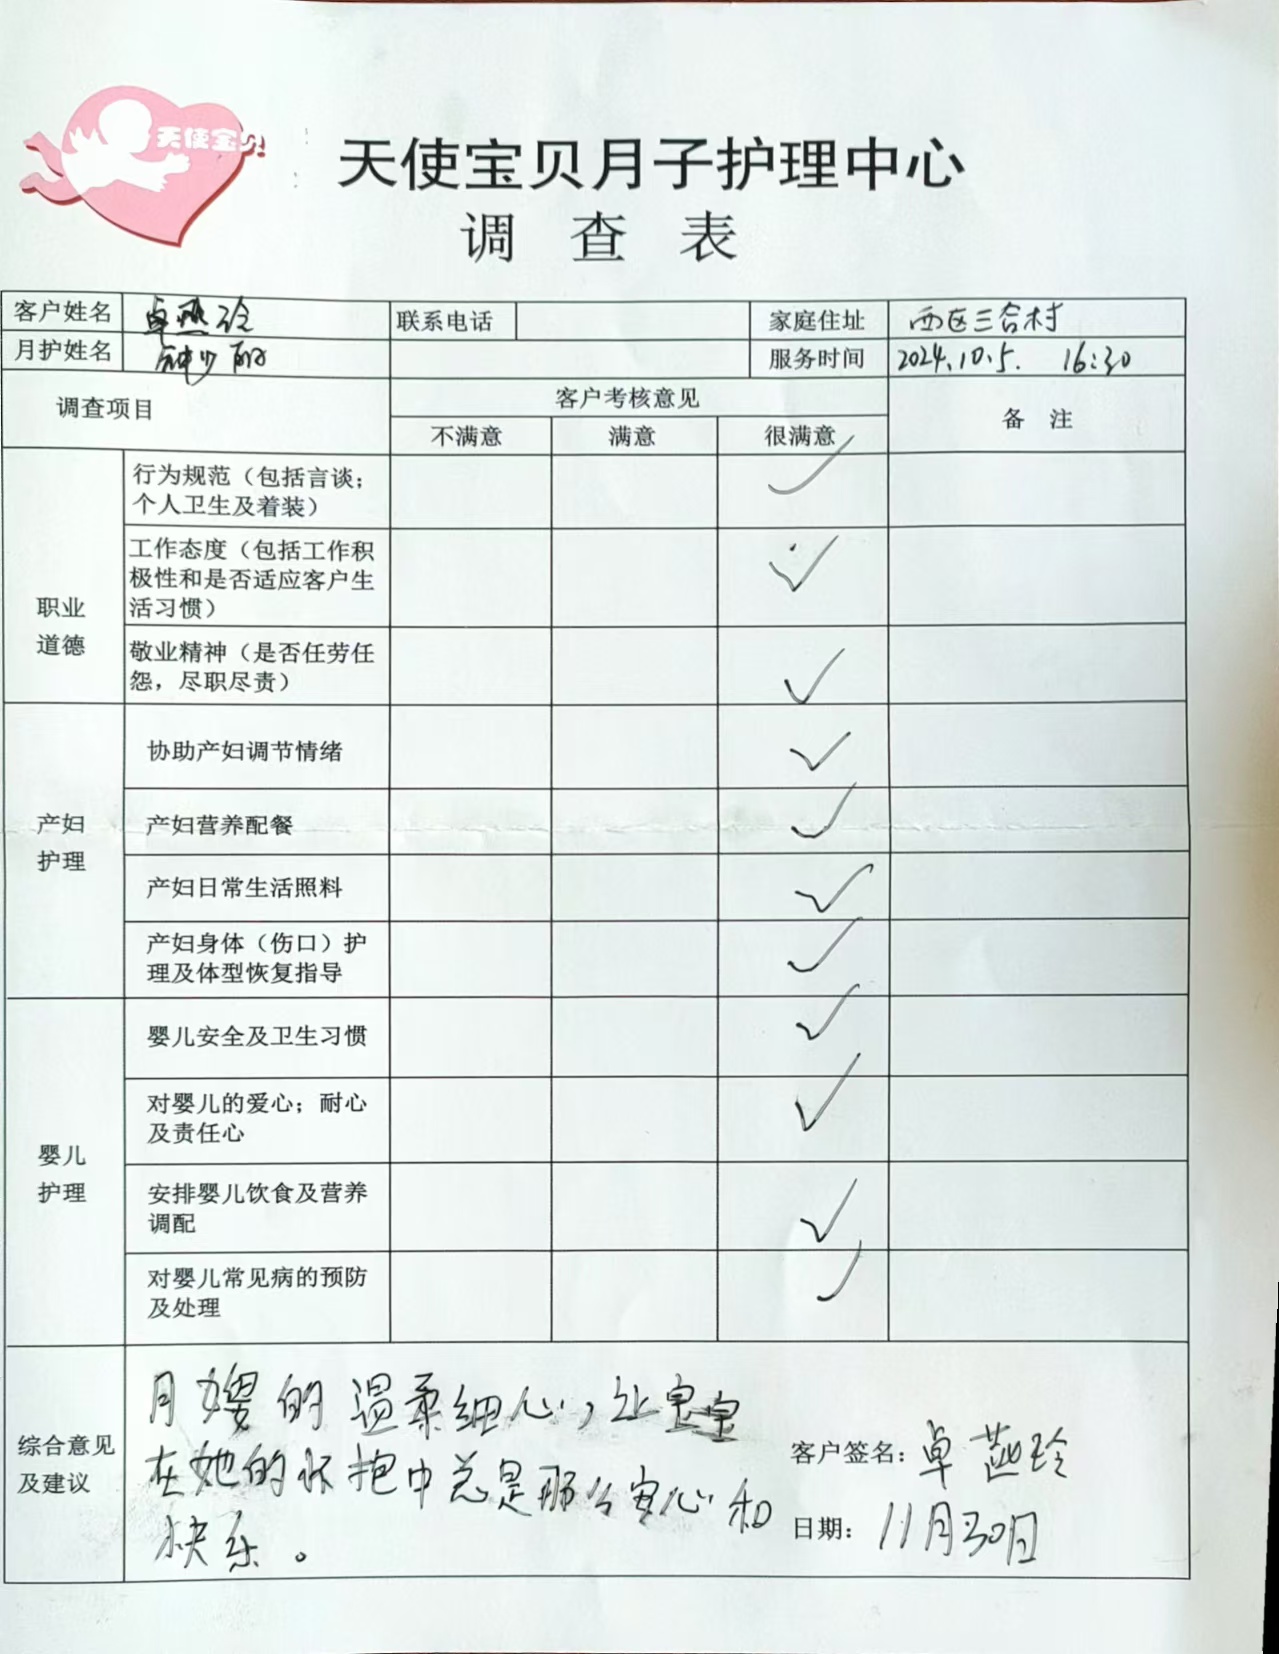 天使宝贝
天使宝贝月子护理中心
调 查 表
客户姓名 卓燕玲 联系电话 家庭住址 西区三合村
月护姓名 钟少丽 服务时间 2024.10.5. 16:30
调查项目 客户考核意见 备 注
不满意 满意 很满意
职业
道德
行为规范（包括言谈；
个人卫生及着装）
工作态度（包括工作积
极性和是否适应客户生
活习惯）
敬业精神（是否任劳任
怨，尽职尽责）
产妇
护理
协助产妇调节情绪
产妇营养配餐
产妇日常生活照料
产妇身体（伤口）护
理及体型恢复指导
婴儿
护理
婴儿安全及卫生习惯
对婴儿的爱心；耐心
及责任心
安排婴儿饮食及营养
调配
对婴儿常见病的预防
及处理
综合意见
及建议
月嫂的温柔细心，让宝宝
在她的怀抱中总是那么安心和
快乐。
客户签名：卓燕玲
日期：11月30日